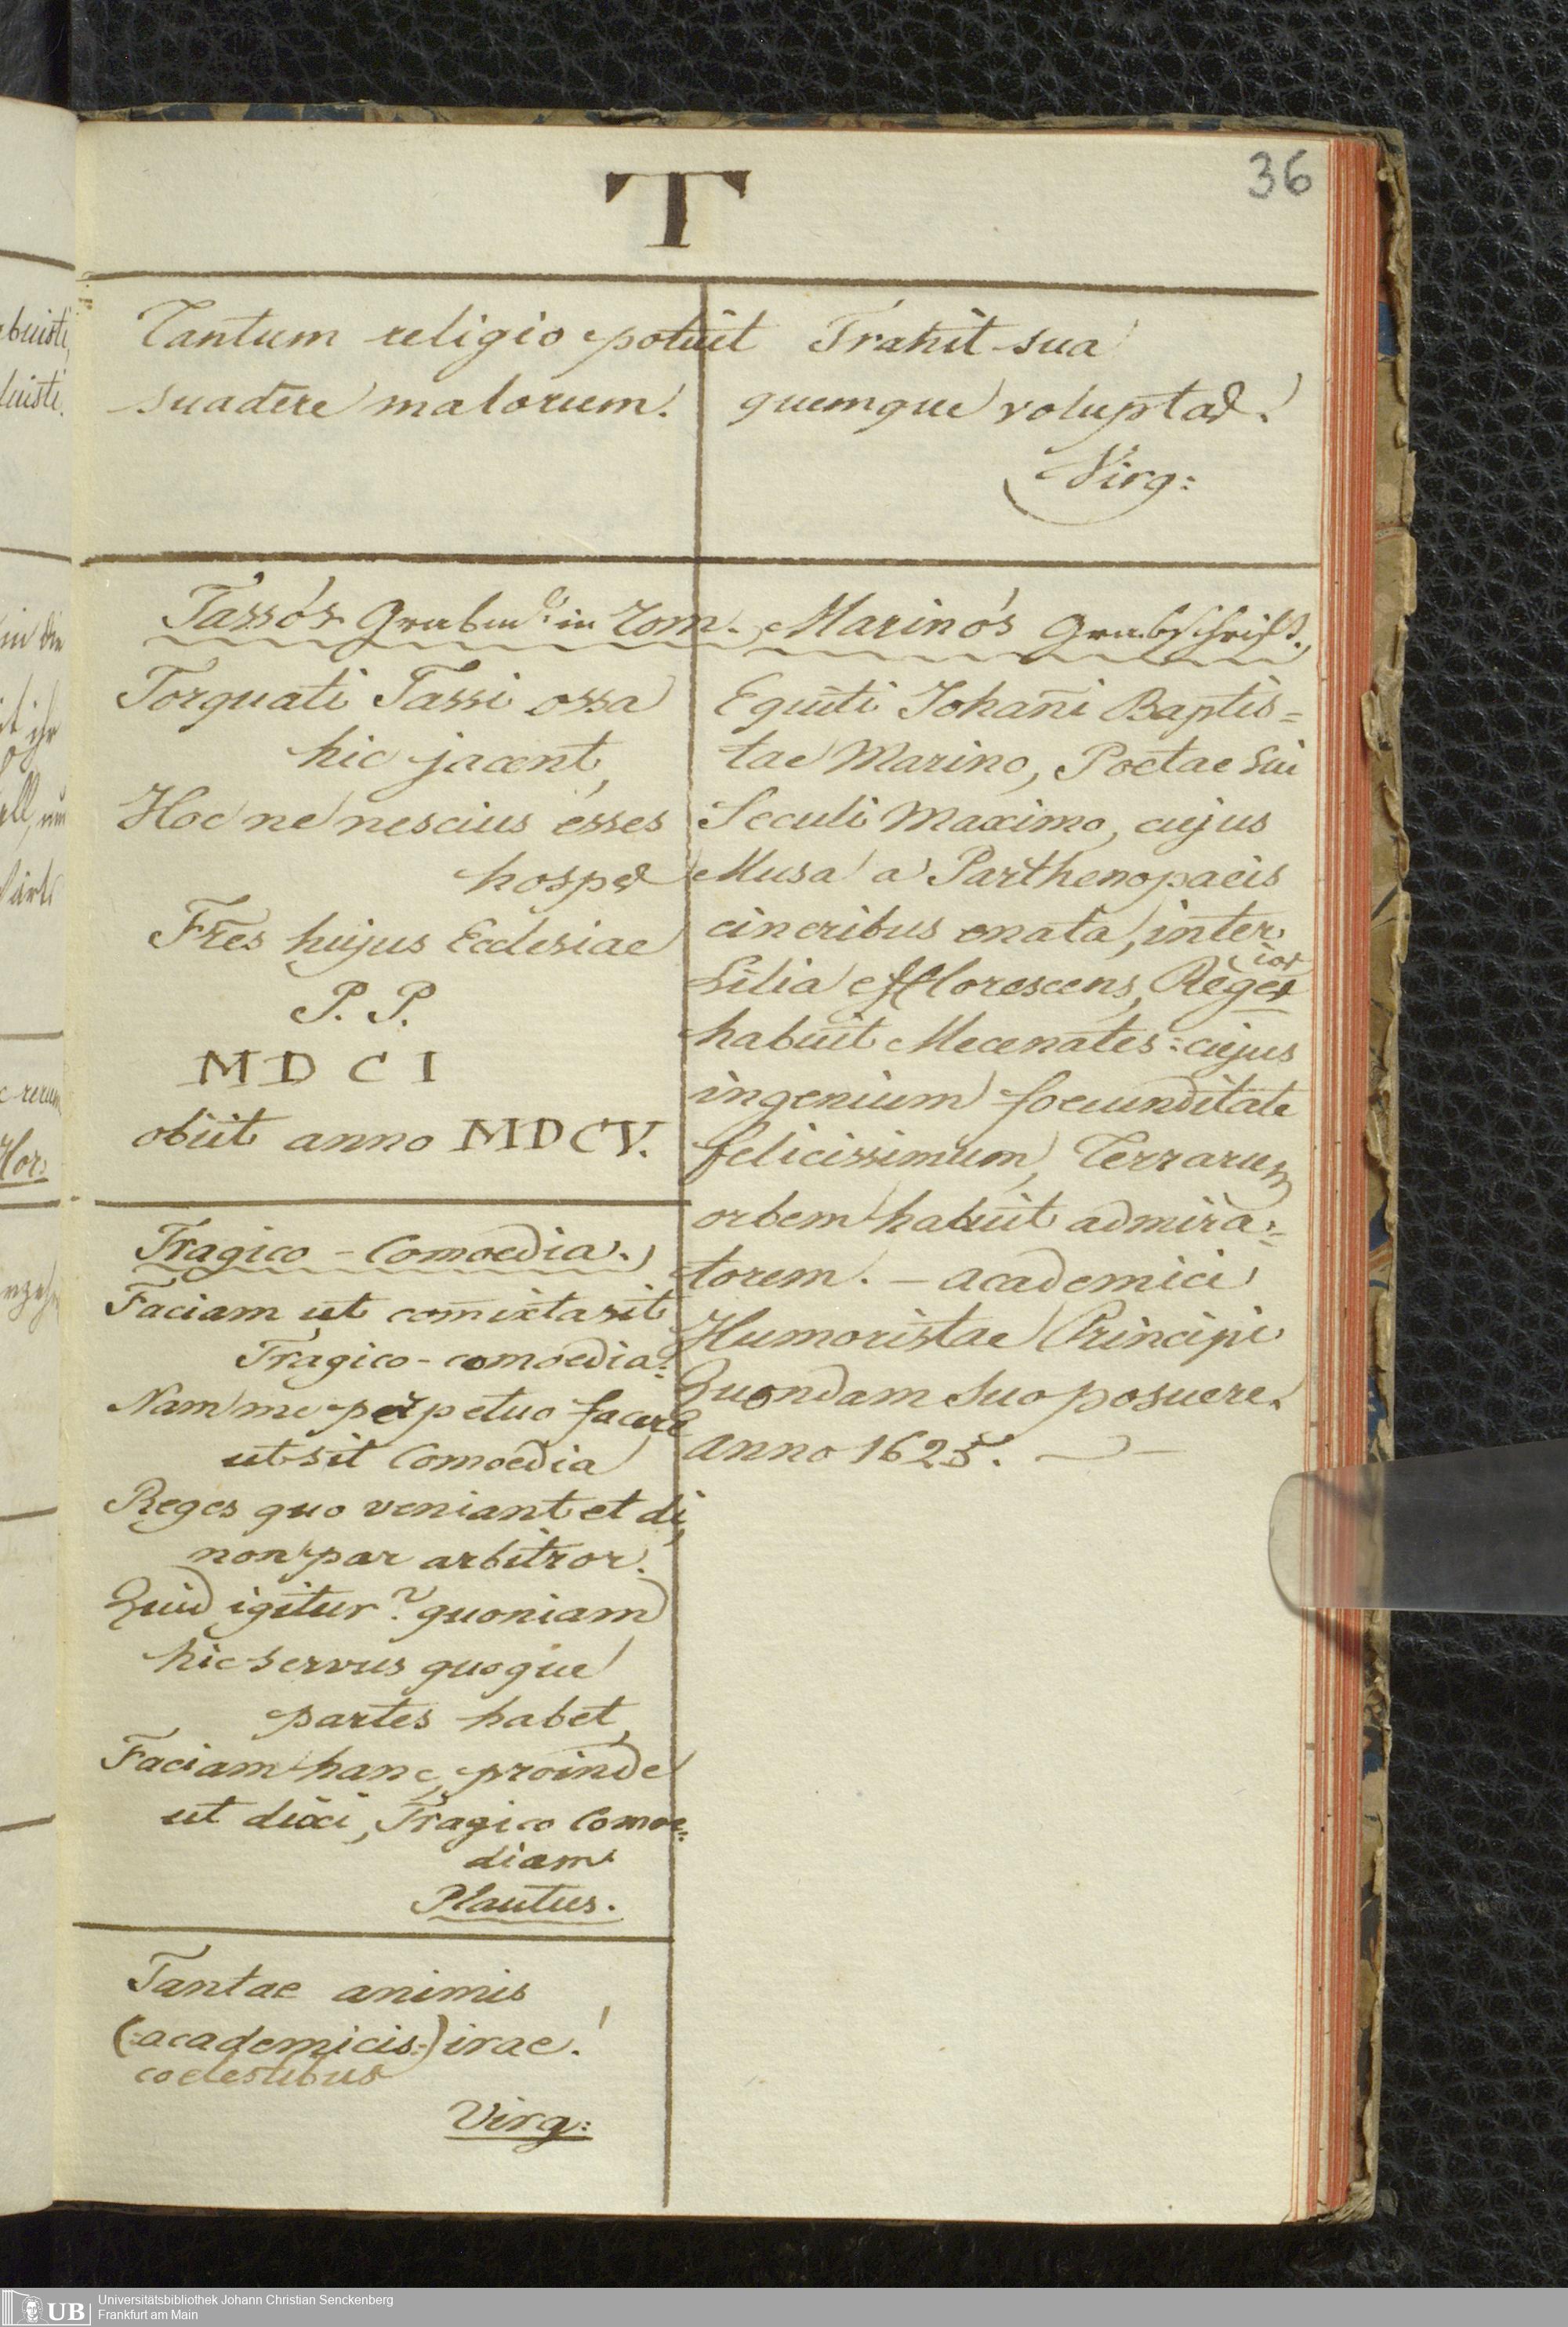 36
T
Tantum religio potuit
suadere malorum!
Trahit sua
quemque voluptas!
Virg:
Tasso's Grabm: in Rom.
Torquati Tassi ossa
hic jacent,
Hoc ne nescius esses
hospes
Fres hujus Ecclesiae
P. P.
MDCI
obiit anno MDCV.
Tragico-Comoedia.
Faciam ut com̅ixta sit
Tragico-comoedia:
Nam me perpetuo facere
ut sit Comoedia
Reges quo veniant et di,
non par arbitror.
Quid igitur? quoniam
hic servus quoque
partes habet,
Faciam hanc, proinde
ut dixi, Tragico Comoe=
diam.
Plautus.
Tantae animis
(:academicis:) irae!
coelestibus
Virg:
Marino's Grabschrift.
Equiti Johan̅i Baptis=
tae Marino, Poetae sui
Seculi Maximo, cujus
Musa a Parthenopaeis
cineribus enata, inter
Lilia efflorescens, Reges
habuit Mecenates: cujus
ingenium foecunditate
felicissimum, Terrarum
orbem habuit admira=
torem. – Academici
Humoristae Principi
Quondam suo posuere.
Anno 1625.
buisti,
luisti.
in die
it ihr
c rerum
Hor:
UB
Universitätsbibliothek Johann Christian Senckenberg
Frankfurt am Main